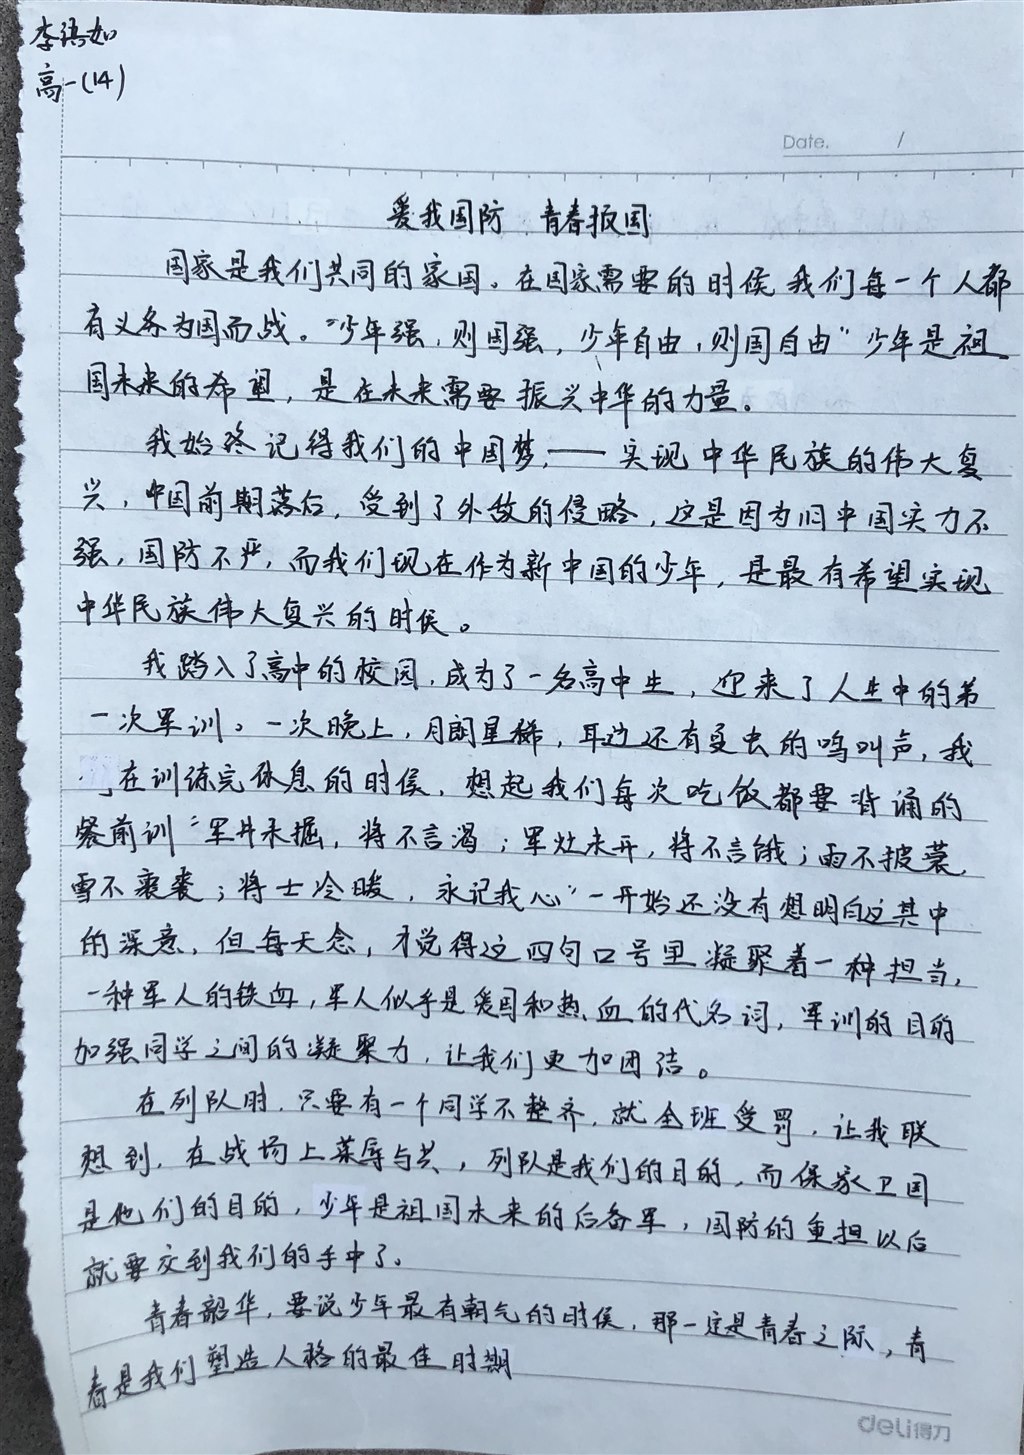 李
高一(14)
Date. /
爱我国防 青春报国
国家是我们共同的家国。在国家需要的时候我们每一个人都
有义务为国而战。“少年强,则国强,少年自由,则国自由”少年是祖
国未来的希望,是在未来需要振兴中华的力量。
我始终记得我们的中国梦,——实现中华民族的伟大复
兴,中国前期落后,受到了外敌的侵略,这是因为旧中国实力不
强,国防不严,而我们现在作为新中国的少年,是最有希望实现
中华民族伟大复兴的时候。
我踏入了高中的校园,成为了一名高中生,迎来了人生中的第
一次军训。一次晚上,月朗星稀,耳边还有夏虫的鸣叫声,我
在训练完休息的时候,想起我们每次吃饭都要背诵的
餐前训“军井未掘,将不言渴;军灶未开,将不言饿;雨不披蓑,
雪不裹裘;将士冷暖,永记我心”一开始还没有想明白这其中
的深意,但每天念,才觉得这四句口号里凝聚着一种担当,
一种军人的铁血,军人似乎是爱国和热血的代名词,军训的目的
加强同学之间的凝聚力,让我们更加团结。
在列队时,只要有一个同学不整齐,就全班受罚,让我联
想到,在战场上荣辱与共,列队是我们的目的,而保家卫国
是他们的目的,少年是祖国未来的后备军,国防的重担以后
就要交到我们的手中了。
青春韶华,要说少年最有朝气的时候,那一定是青春之际,青
春是我们塑造人格的最佳时期
deli得力